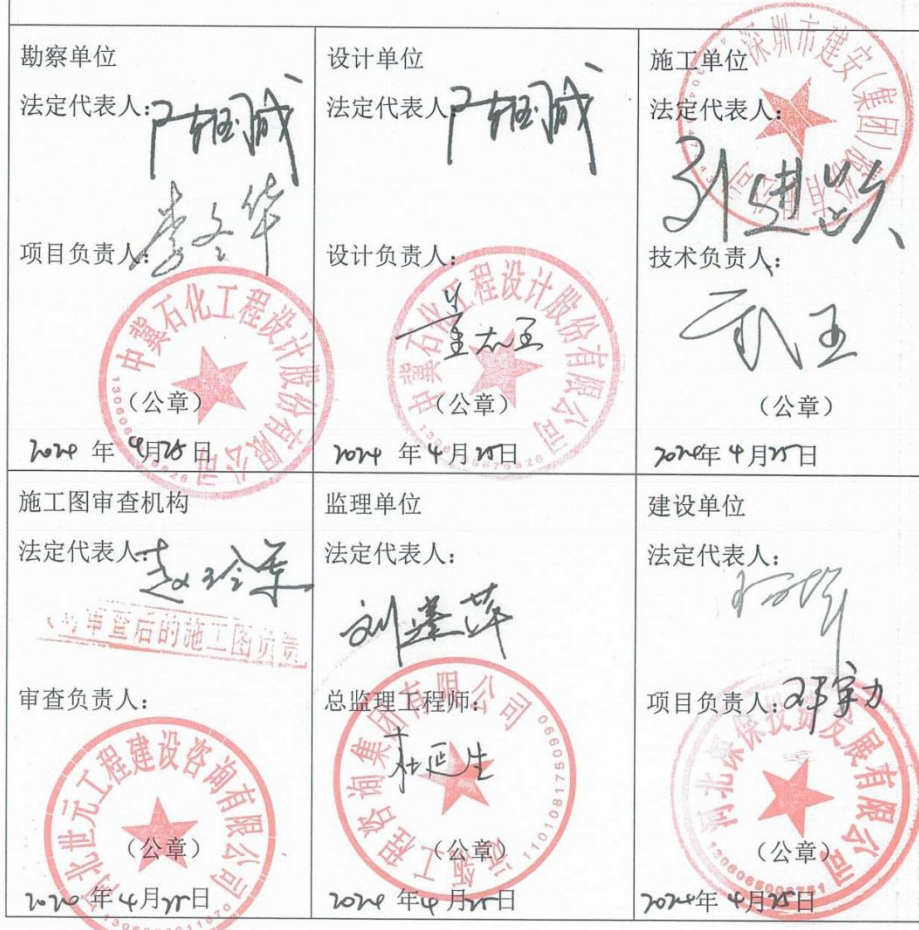 勘察单位
法定代表人：
项目负责人：
中冀石化工程设计股份有限公司
（公章）
年4月25日
设计单位
法定代表人
设计负责人：
董志玉
中冀石化工程设计股份有限公司
（公章）
年4月25日
施工单位
法定代表人：
深圳市建安(集团)股份有限公司
技术负责人：
（公章）
年4月25日
施工图审查机构
法定代表人
审查后的施工图负责
审查负责人：
河北世元工程建设咨询有限公司
（公章）
年4月25日
监理单位
法定代表人：
总监理工程师：
杜延生
工程咨询集团有限公司
（公章）
年4月25日
建设单位
法定代表人：
项目负责人：
河北深保投资发展有限公司
（公章）
年4月25日